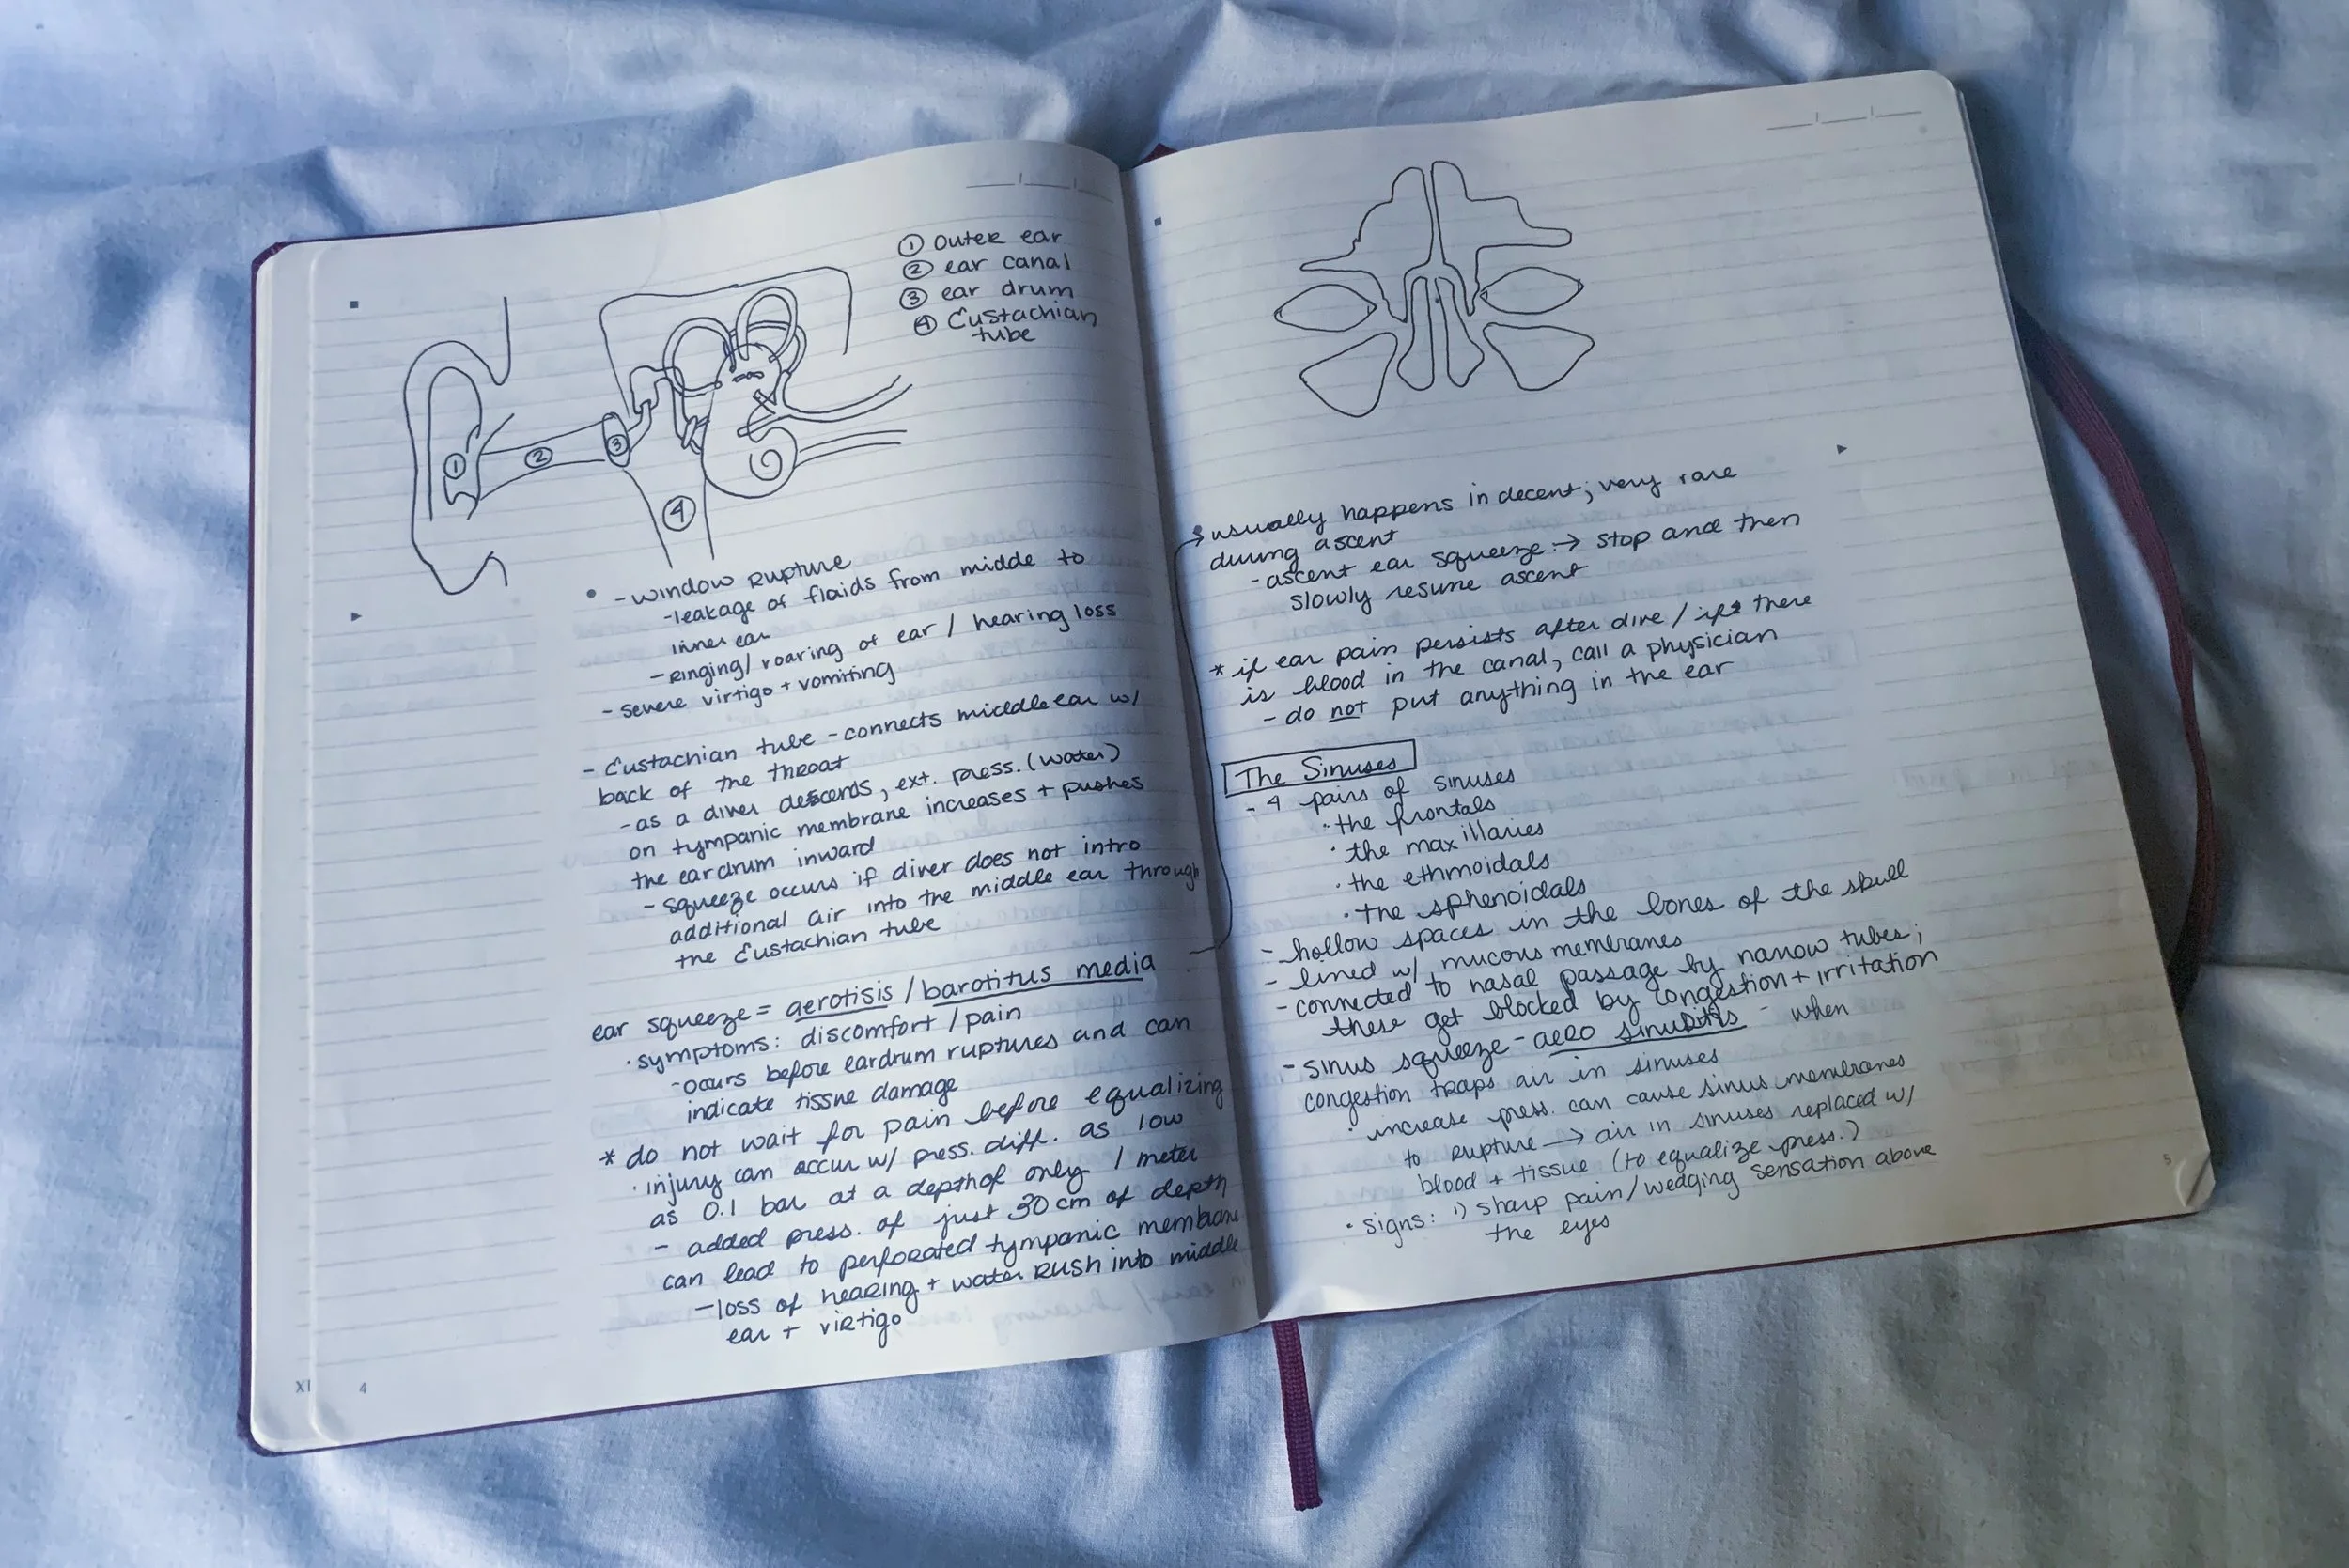 ① outer ear
② ear canal
③ ear drum
④ Eustachian
tube
1
2
3
4
- window rupture
- leakage of fluids from midde to
inner ear
- ringing/ roaring of ear / hearing loss
- severe virtigo + vomiting
- Eustachian tube - connects middle ear w/
back of the throat
- as a diver descends, ext. press. (water)
on tympanic membrane increases + pushes
the eardrum inward
- squeeze occurs if diver does not intro
additional air into the middle ear through
the Eustachian tube
ear squeeze = aerotisis / barotitus media
· symptoms: discomfort / pain
- occurs before eardrum ruptures and can
indicate tissue damage
* do not wait for pain before equalizing
· injury can occur w/ press. diff. as low
as 0.1 bar at a depth of only 1 meter
- added press. of just 30 cm of depth
can lead to perforated tympanic membrane
- loss of hearing + water rush into middle
ear + virtigo
XI 4
usually happens in decent; very rare
during ascent
- ascent ear squeeze → stop and then
slowly resume ascent
* if ear pain persists after dive / if there
is blood in the canal, call a physician
- do not put anything in the ear
The Sinuses
- 4 pairs of sinuses
· the frontals
· the maxillaries
· the ethmoidals
· the sphenoidals
- hollow spaces in the bones of the skull
- lined w/ mucous membranes
- connected to nasal passage by narrow tubes;
these get blocked by congestion + irritation
- sinus squeeze - aero sinusitis - when
congestion traps air in sinuses
· increase press. can cause sinus membranes
to rupture → air in sinuses replaced w/
blood + tissue (to equalize press.)
· signs: 1) sharp pain/wedging sensation above
the eyes
5